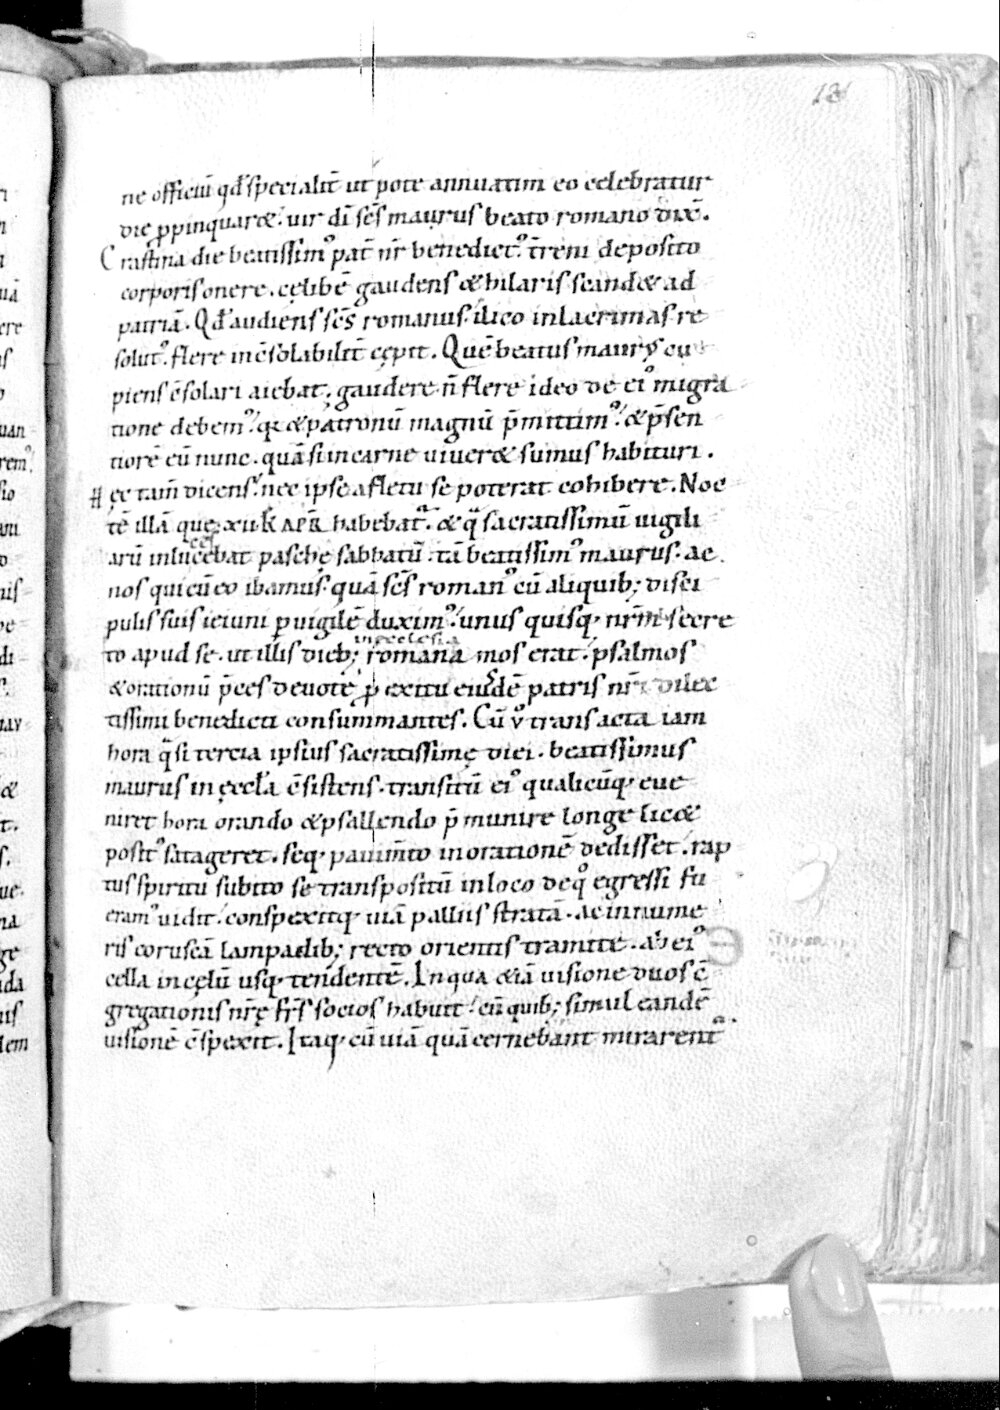 181
ne officiū qđ specialit̄ ut pote annuatim eo celebratur
die ꝓpinquar&. uir dī sc̄s maurus beato romano dix̄.
Crastina die beatissimꝰ pat̄ nr̄ benedictꝰ t̄reni deposito
corporis onere. cęlibē gaudens & hilaris scand& ad
patriā. Qđ audiens sc̄s romanus. ilico in lacrimas re
solutꝰ. flere incsolabilit̄ cępit. Quē beatus maurꝰ cu
piens c̄solari aiebat. gaudere n̄ flere ideo de eiꝰ migra
tione debemꝰ. q; & patronū magnū p̄mittimꝰ. & p̄sen
tiorē eū nunc. quā si in carne uiuer& sumus habituri.
Hęc tam̄ dicens. nec ipse a fletu se poterat cohibere. Noc
tē illā que xii k̄ apr̄ habebat̄. & qᵃ sacratissimū uigili
arū inlucebat paschę sabbatū. tā beatissimꝰ maurus. ac
nos qui cū eo ibamus. quā sc̄s romanꝰ cū aliquib; disci
pulis suis ieiuni puigilē duximꝰ. unus quisq; nr̄m secre
in ecclesia
to apud se. ut illis dieb; romana mos erat. psalmos
& orationū p̄ces deuote ꝓ exitu eiusdē patris nr̄i dilec
tissimi benedicti consummantes. Cū ꝟ transacta iam
hora qᵃsi tercia ipsius sacratissimę diei. beatissimus
maurus in ęccl̄a c̄sistens. transitū eiꝰ qualicūq; eue
niret hora orando & psallendo p̄munire longe lic&
positꝰ satageret. seq; pauim̄to in orationē dedisset. rap
tus spiritu subito se transpositū in loco de qͦ egressi fu
eramꝰ uidit. conspexitq; uiā palliis stratā. ac innume
ris coruscā lampadib; recto orientis tramite. ab eiꝰ
cella in cęlū usq; tendentē. In qua &iā uisione duos c̄
gregationis nr̄ę fr̄s socios habuit. cū quib; simul eandē
uisionē c̄spexit. Itaq; cū uiā quā cernebant mirarent̄